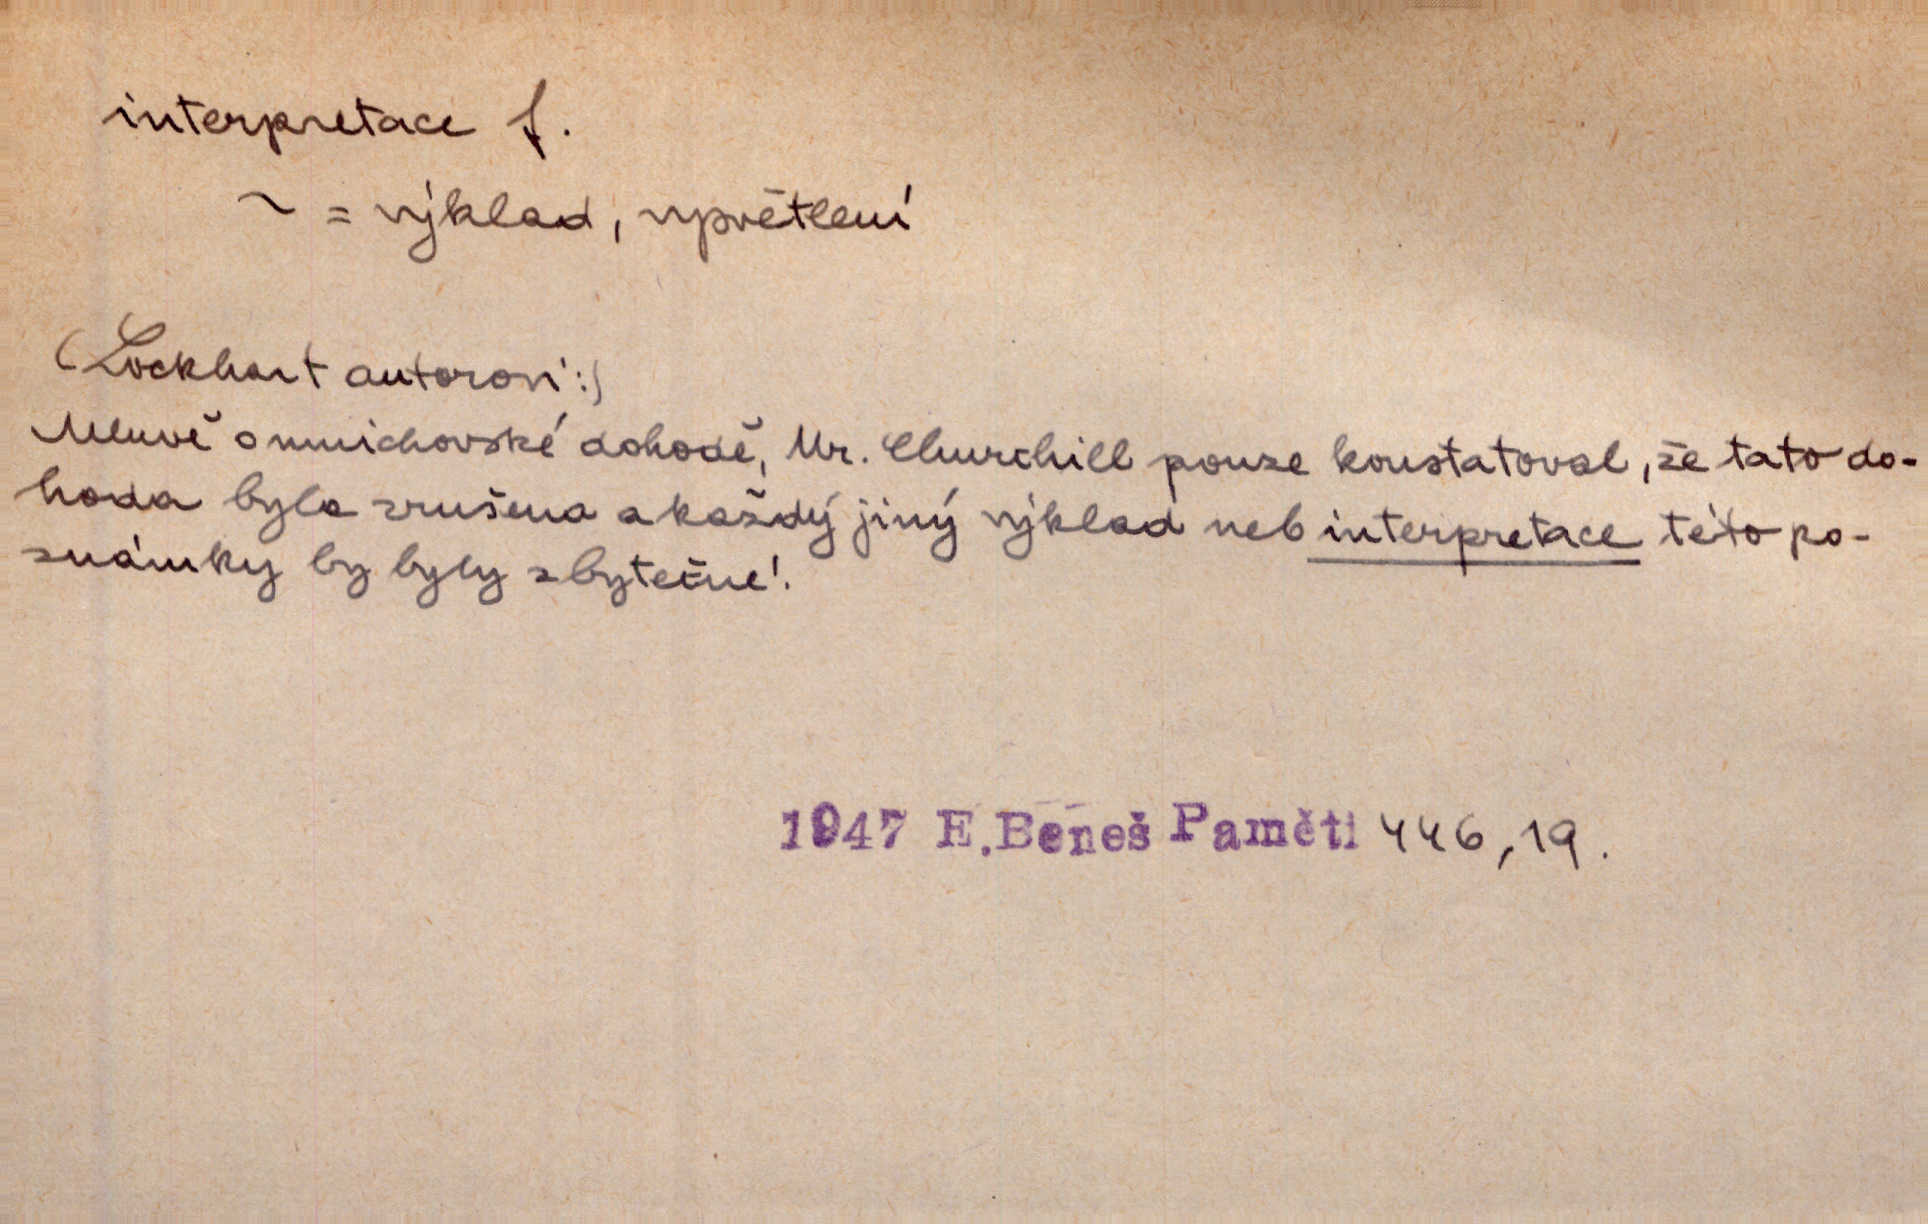 interpretace f.
~ = výklad, vysvětlení
(Lockhart autorovi:)
Mluvě o mnichovské dohodě, Mr. Churchill pouze konstatoval, že tato do-
hoda byla zrušena a každý jiný výklad neb interpretace této po-
známky by byly zbytečné.
1947 E. Beneš Paměti 446,19.